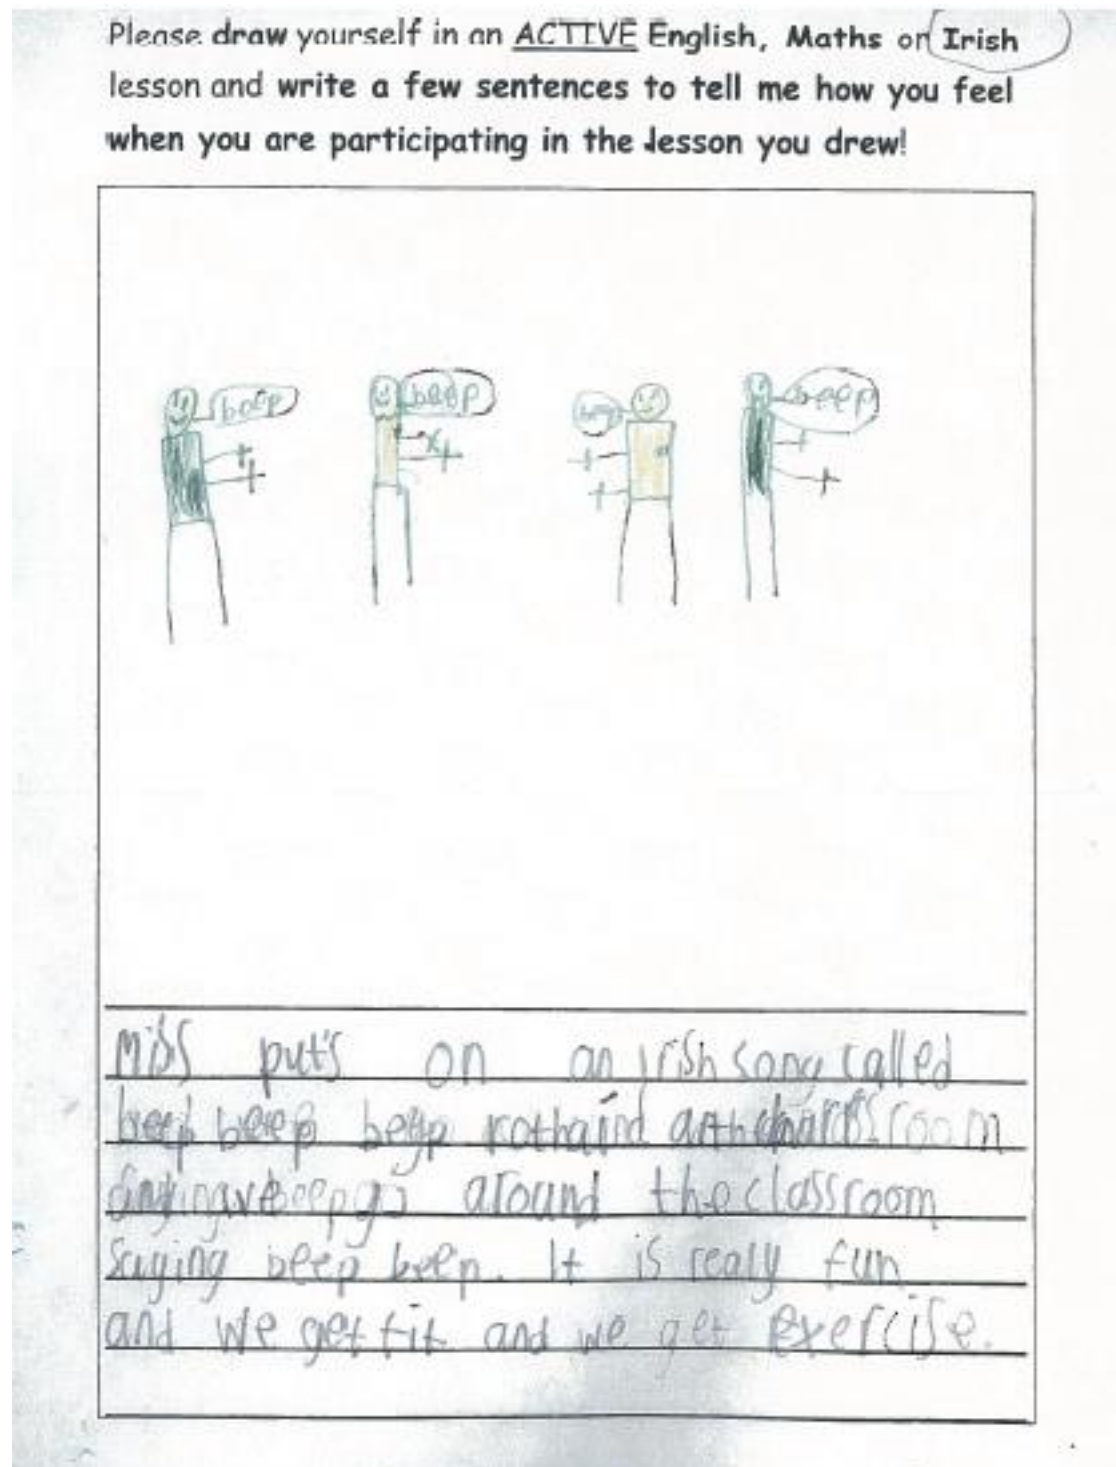 Please draw yourself in an ACTIVE English, Maths or Irish
lesson and write a few sentences to tell me how you feel
when you are participating in the lesson you drew!
beep beep beep beep
Miss put's on an Irish song called
beep beep beep room
around the classroom
saying beep beep. It is realy fun
and we get fit and we get exercise.